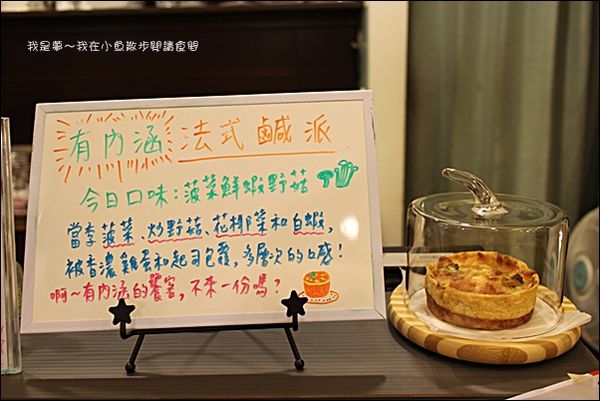 我是夢～我在小魚散步閱讀食間
有內涵 法式鹹派
今日口味：菠菜鮮蝦野菇
當季菠菜、炒野菇、花椰菜和白蝦，
被香濃雞蛋和起司包覆，多層次的口感！
啊～有內涵的饗宴，不來一份嗎？